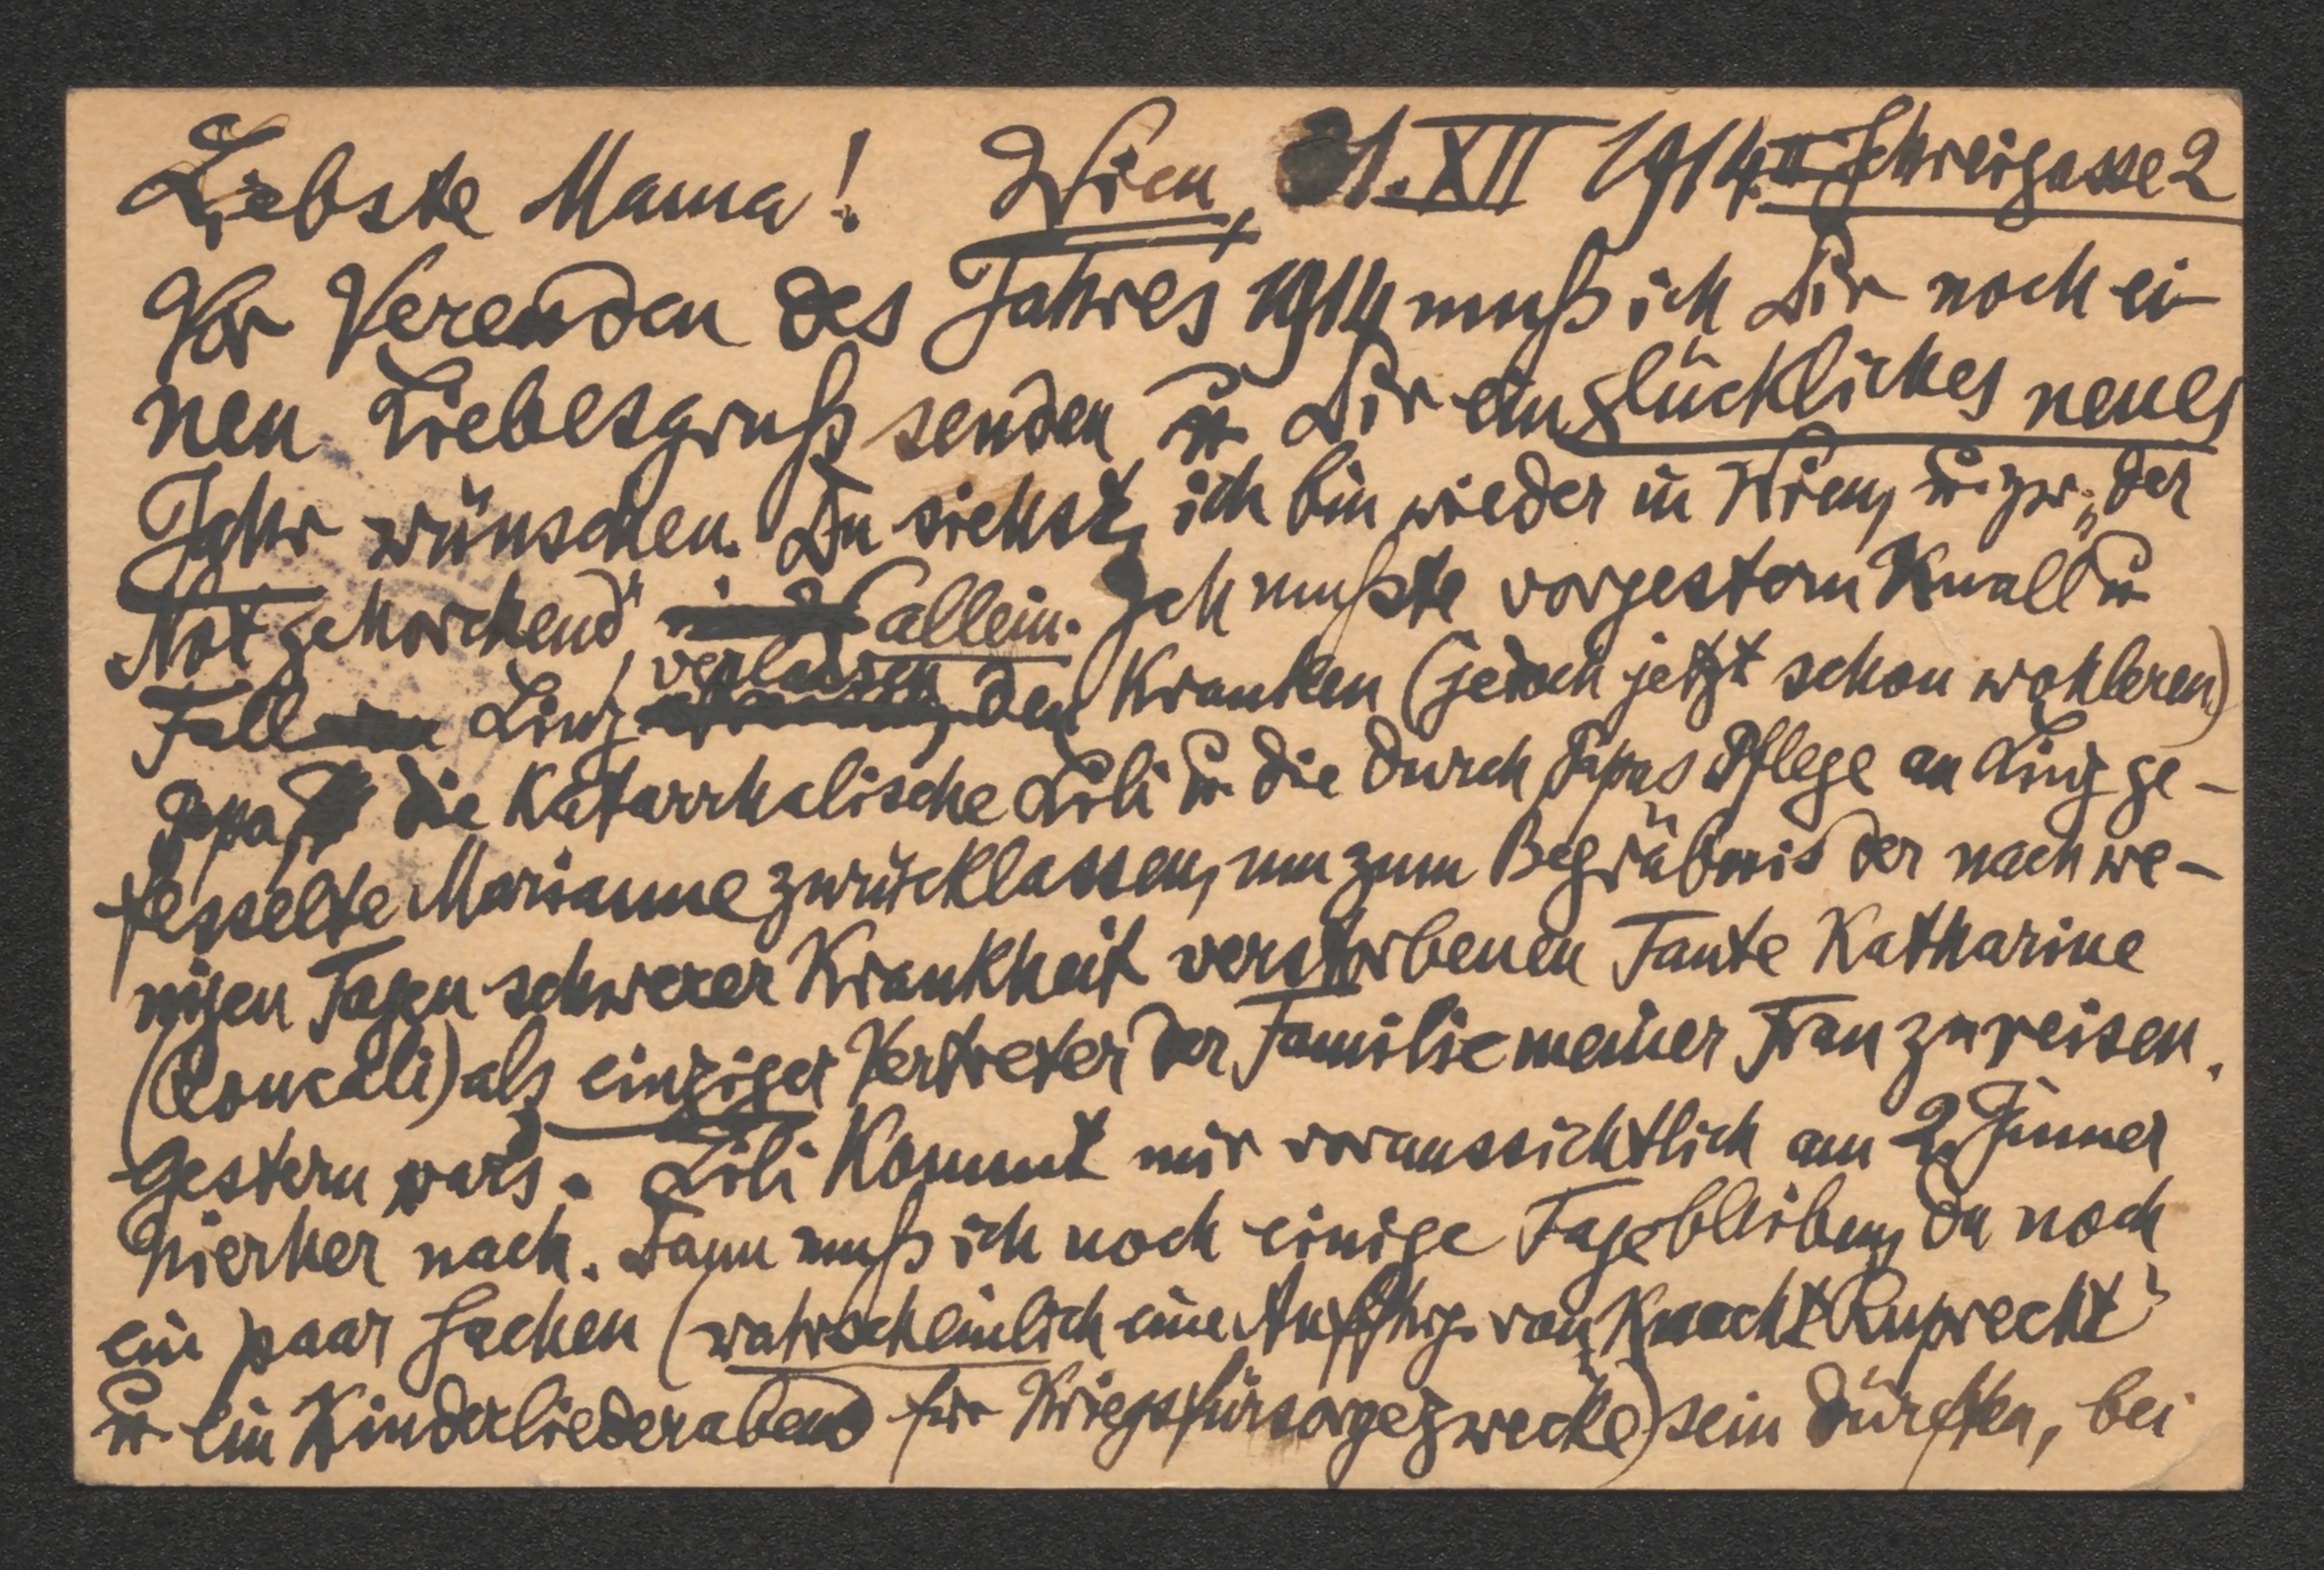 Liebste Mama! Wien, 31. XII 1914. II Schreigasse 2
Vor Verenden des Jahres 1914 muß ich Dir noch ei-
nen Liebesgruß senden u Dir ein glückliches neues
Jahr wünschen. Du siehst, ich bin wieder in Wien, u. zw. „der
Not gehorchend" allein. Ich mußte vorgestern Knall u
Fall Linz verlassen, den Kranken (jedoch jetzt schon wohleren)
Papa, die katarrhalische Lili u. die durch Papas Pflege an Linz ge-
fesselte Marianne zurücklassen, um zum Begräbnis der nach we-
nigen Tagen schwerer Krankheit verstorbenen Tante Katharine
(Roncali) als einziger Vertreter der Familie meiner Frau zu reisen.
Gestern wars. Lili kommt mir voraussichtlich am 2. Jänner
hierher nach. Dann muß ich noch einige Tage bleiben, da noch
ein paar Sachen (wahrscheinlich eine Auffhrg. von Knecht Ruprecht
u ein Kinderliederabend für Kriegsfürsorgezwecke) sein dürften, bei